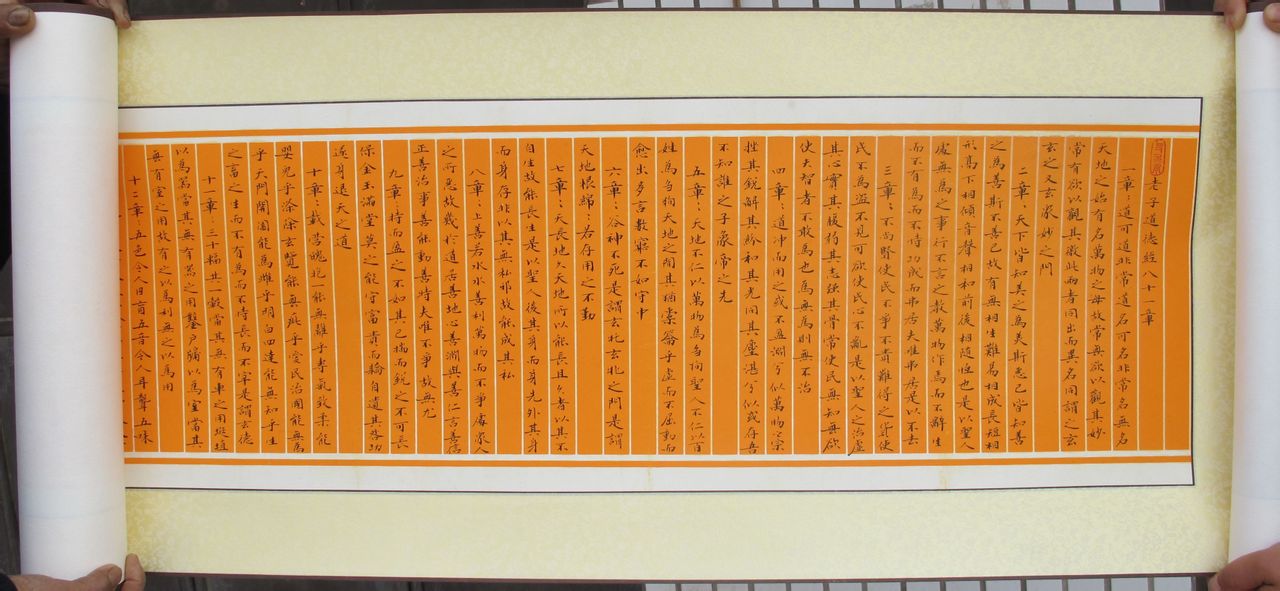 老子道德经八十一章
一章：道可道非常道名可名非常名無名
天地之始有名萬物之母故常無欲以觀其妙
常有欲以觀其徼此兩者同出而異名同謂之玄
玄之又玄眾妙之門
二章：天下皆知美之為美斯惡已皆知善
之為善斯不善已故有無相生難易相成長短相
形高下相傾音聲相和前後相随恒也是以聖人
處無為之事行不言之教萬物作焉而不辭生
而不有為而不恃功成而弗居夫唯弗居是以不去
三章：不尚賢使民不爭不貴難得之貨使
民不為盗不見可欲使民心不亂是以聖人之治虚
其心實其腹弱其志强其骨常使民無知無欲
使夫智者不敢為也為無為則無不治
四章：道冲而用之或不盈渊兮似萬物之宗
挫其銳解其紛和其光同其塵湛兮似或存吾
不知誰之子象帝之先
五章：天地不仁以萬物為芻狗聖人不仁以百
姓為芻狗天地之間其猶橐籥乎虚而不屈動而
愈出多言數窮不如守中
六章：谷神不死是謂玄牝玄牝之門是謂
天地根綿：若存用之不勤
七章：天長地久天地所以能長且久者以其不
自生故能長生是以聖人後其身而身先外其身
而身存非以其無私邪故能成其私
八章：上善若水水善利萬物而不爭處眾人
之所惡故幾於道居善地心善淵與善仁言善信
正善治事善能動善時夫唯不爭故無尤
九章：持而盈之不如其已揣而銳之不可長
保金玉滿堂莫之能守富貴而驕自遺其咎功
遂身退天之道
十章：載營魄抱一能無離乎專氣致柔能
嬰兒乎涤除玄覽能無疵乎愛民治國能無為
乎天門開闔能為雌乎明白四達能無知乎生
之畜之生而不有為而不恃長而不宰是謂玄德
十一章：三十輻共一轂當其無有車之用埏埴
以為器當其無有器之用鑿户牖以為室當其
無有室之用故有之以為利無之以為用
十二章五色令人目盲五音令人耳聾五味